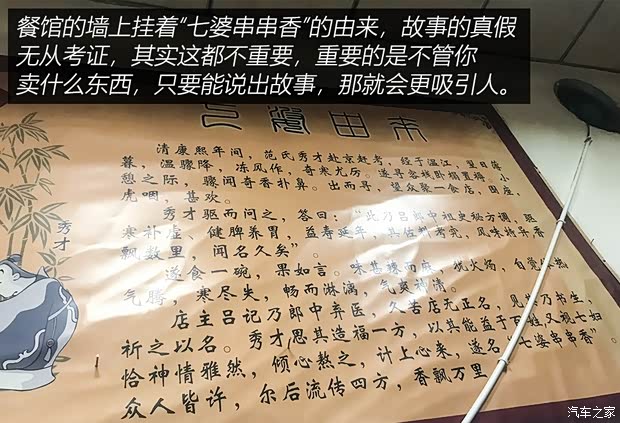 餐馆的墙上挂着“七婆串串香”的由来，故事的真假
无从考证，其实这都不重要，重要的是不管你
卖什么东西，只要能说出故事，那就会更吸引人。
七婆由来
清康熙年间，范氏秀才赴京赶考，经于温江，翌日薄
暮，温骤降，冻风作，奇寒尤厉。遂寻客栈卧榻置姆，小
憩之际，骤闻奇香扑鼻。出而寻，望众聚一食店，围座，
虎咽，甚欢。
秀才驱而问之，答曰：“此乃吕郎中祖史秘方调，驱
寒补虚、健脾养胃，益寿延年，其佐料考究，风味特异香
飘数里，闻名久矣”。
遂食一碗，果如言。味甚臻而麻，犹火炀，自觉体热
气腾，寒尽失，畅而淋漓，气爽神清。
店主吕记乃郎中弃医，久苦店无正名，见物乃书生，
祈之以名。秀才思其造福一方，以其能益于百姓又视七妇
恰神情雅然，倾心熬之，计上心来，遂名“七婆串串香”。
众人皆许，尔后流传四方，香飘万里
秀才
汽车之家